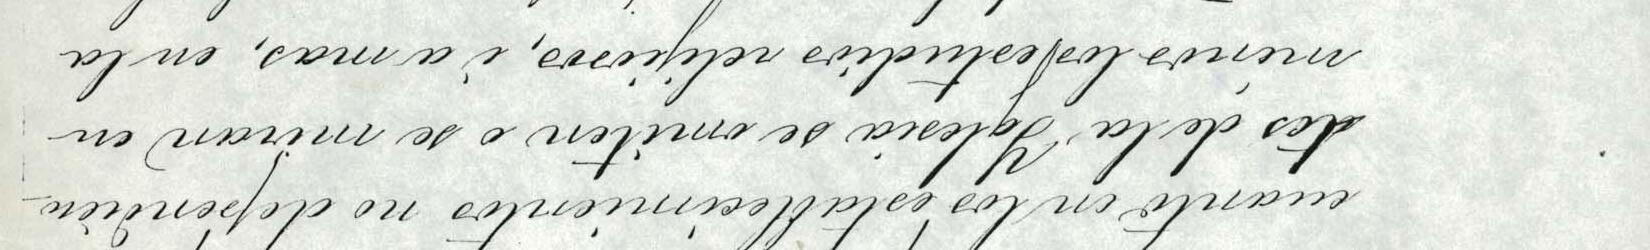 cuanto en los establecimientos no dependien-
tes de la Yglesia se omiten o se miran en
ménos los estudios relijiosos, i a mas, en la